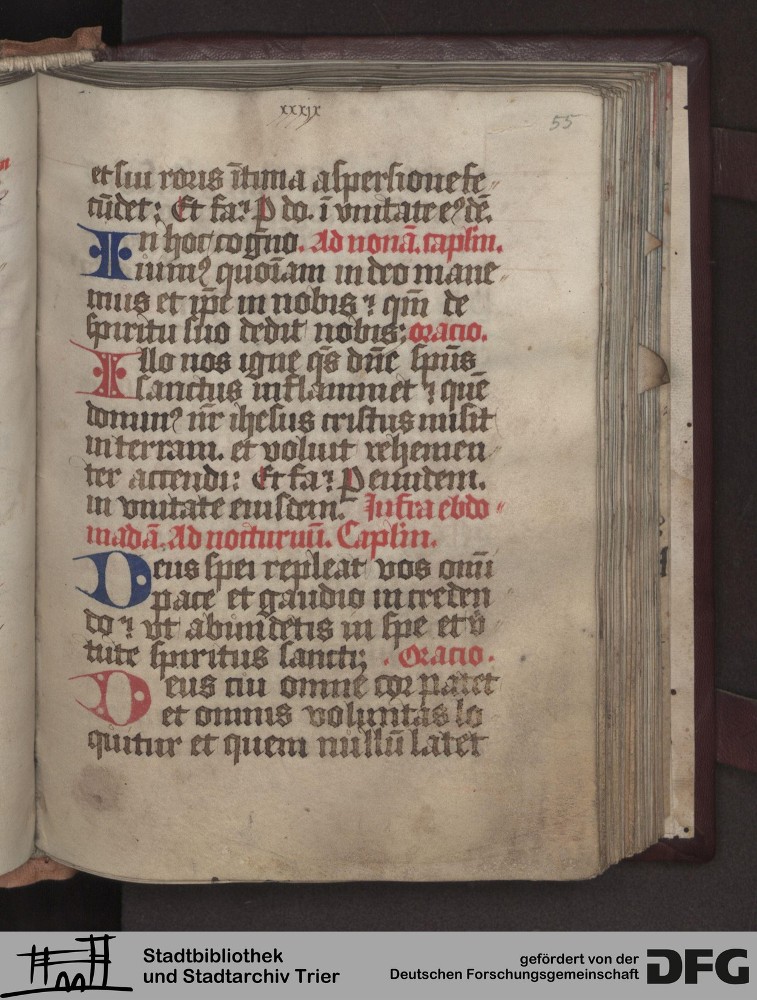 xxxix
55
et sui roris ītima aspersione fe
cūdet: Et fa⁊ P do. ī vnitate eꝰdē.
In hoc cogno. Ad nonā. caplm.
iumꝰ quoīam in deo mane
mus et ip̄e in nobis ⁊ qm̄ de
spiritu suo dedit nobis; oracio.
Illo nos igne qs̄ dn̄e spūs
sanctus inflammet ⁊ quē
dominꝰ nr̄ ihesus cristus misit
in terram. et voluit vehemen
ter accendi: Et fa⁊ P eiusdem.
in vnitate eiusdem. Infra ebdo
madā. Ad nocturnū. Caplm.
Deus spei repleat vos omī
pace et gaudio in creden
do ⁊ vt abundetis in spe et v̄
tute spiritus sancti; . Oracio.
Deus cui omne cor patet
et omnis voluntas lo
quitur et quem nullū latet
Stadtbibliothek
und Stadtarchiv Trier
gefördert von der
Deutschen Forschungsgemeinschaft
DFG